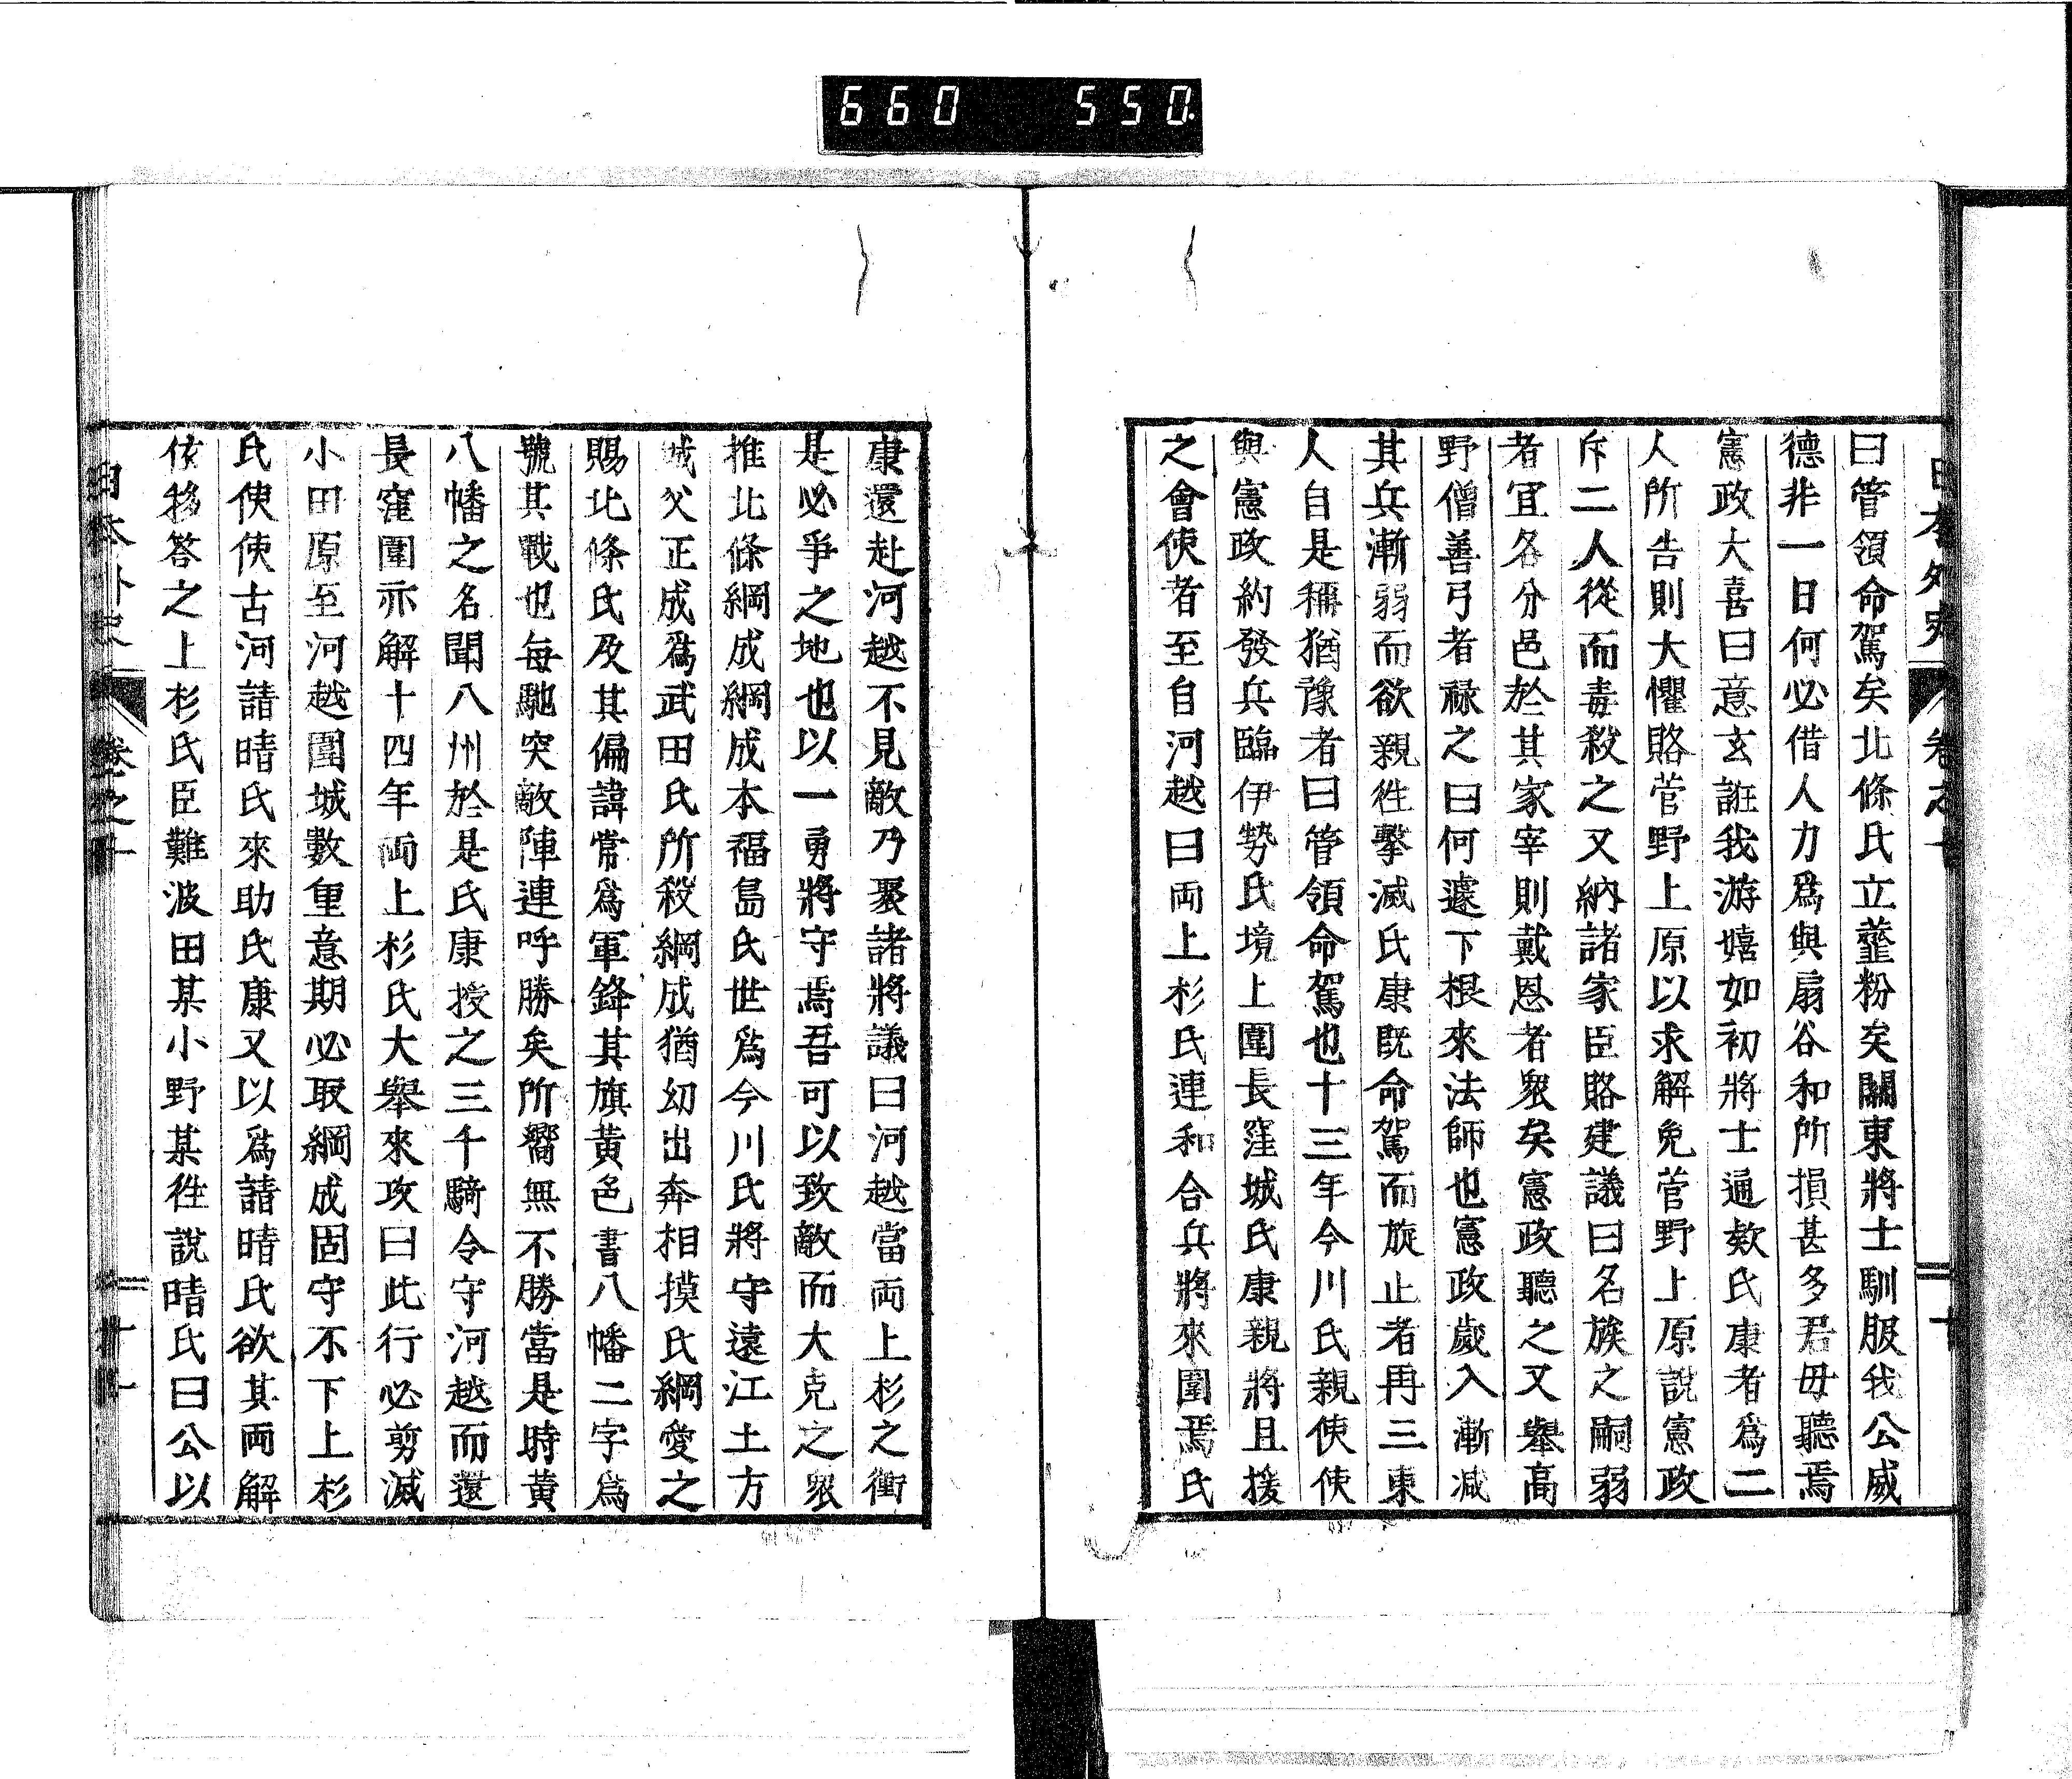 660 550.
日本外史 卷之十 十
曰管領命駕矣北條氏立虀粉矣關東將士馴服我公威
德非一日何必借人力爲與扇谷和所損甚多君毋聽焉
憲政大喜曰意玄誑我游嬉如初將士通欵氏康者爲二
人所告則大懼賂菅野上原以求解免菅野上原說憲政
斥二人從而毒殺之又納諸家臣賂建議曰名族之嗣弱
者宜各分邑於其家宰則戴恩者衆矣憲政聽之又舉高
野僧善弓者祿之曰何遽下根來法師也憲政歲入漸减
其兵漸弱而欲親徃擊滅氏康既命駕而旋止者再三東
人自是稱猶豫者曰管領命駕也十三年今川氏親使使
與憲政約發兵臨伊勢氏境上圍長窪城氏康親將且援
之會使者至自河越曰両上杉氏連和合兵將來圍焉氏
康還赴河越不見敵乃聚諸將議曰河越當両上杉之衝
是必爭之地也以一勇將守焉吾可以致敵而大克之衆
推北條綱成綱成本福島氏世爲今川氏將守遠江土方
城父正成爲武田氏所殺綱成猶幼出奔相摸氏綱愛之
賜北條氏及其偏諱常爲軍鋒其旗黃色書八幡二字爲
號其戰也每馳突敵陣連呼勝矣所嚮無不勝當是時黃
八幡之名聞八州於是氏康授之三千騎令守河越而還
長窪圍亦解十四年両上杉氏大舉來攻曰此行必剪滅
小田原至河越圍城數重意期必取綱成固守不下上杉
氏使使古河請晴氏來助氏康又以爲請晴氏欲其両解
依移答之上杉氏臣難波田某小野某徃說晴氏曰公以
日本外史 卷之十 十一